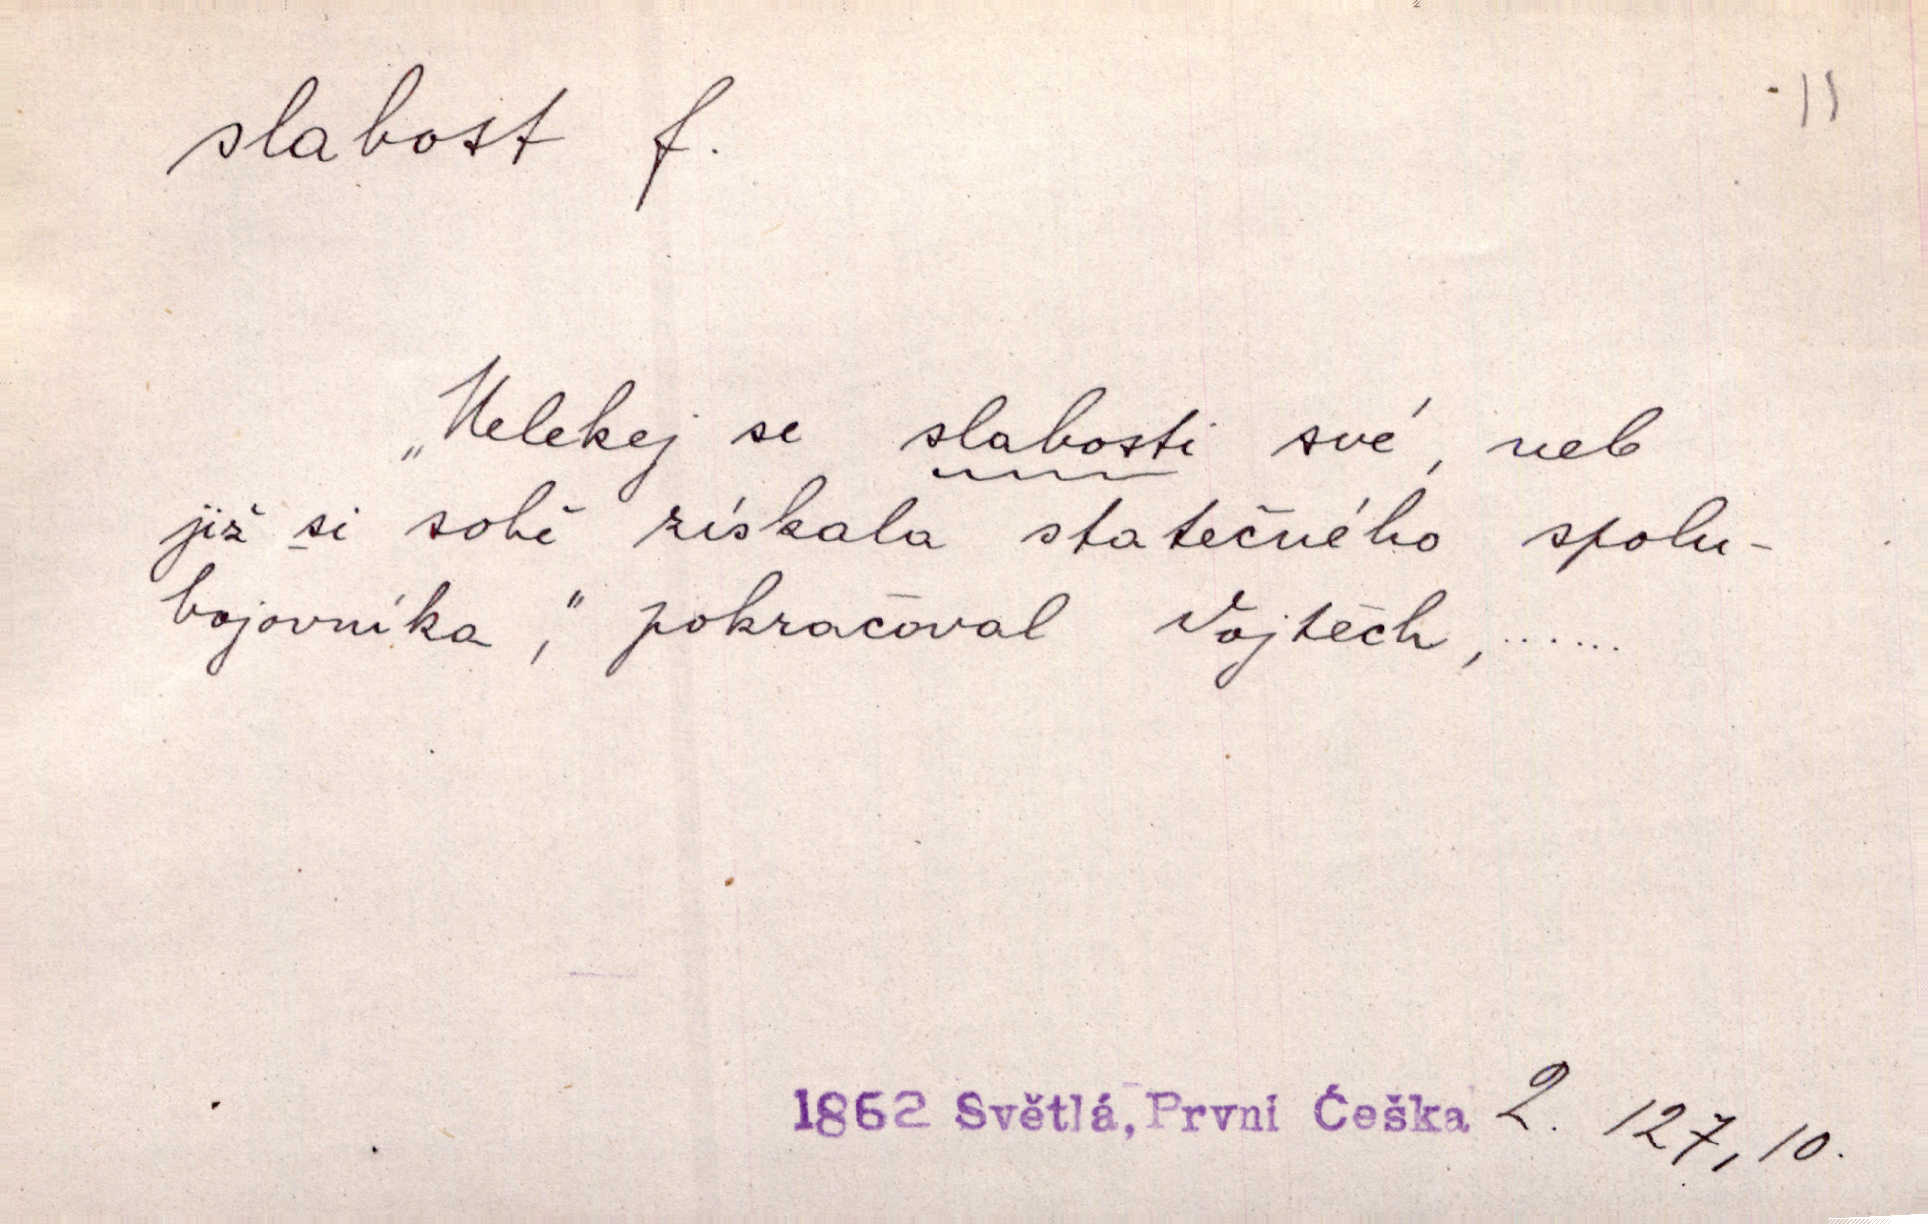 slabost f.
11
„Nelekej se slabosti své, neb
již si sobě získala statečného spolu-
bojovníka," pokračoval Vojtěch,......
1862 Světlá, První Češka 2. 127, 10.